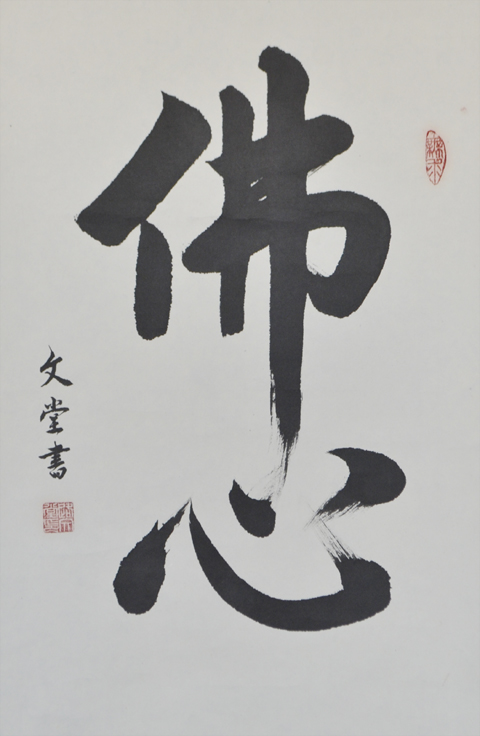 佛心
文堂書